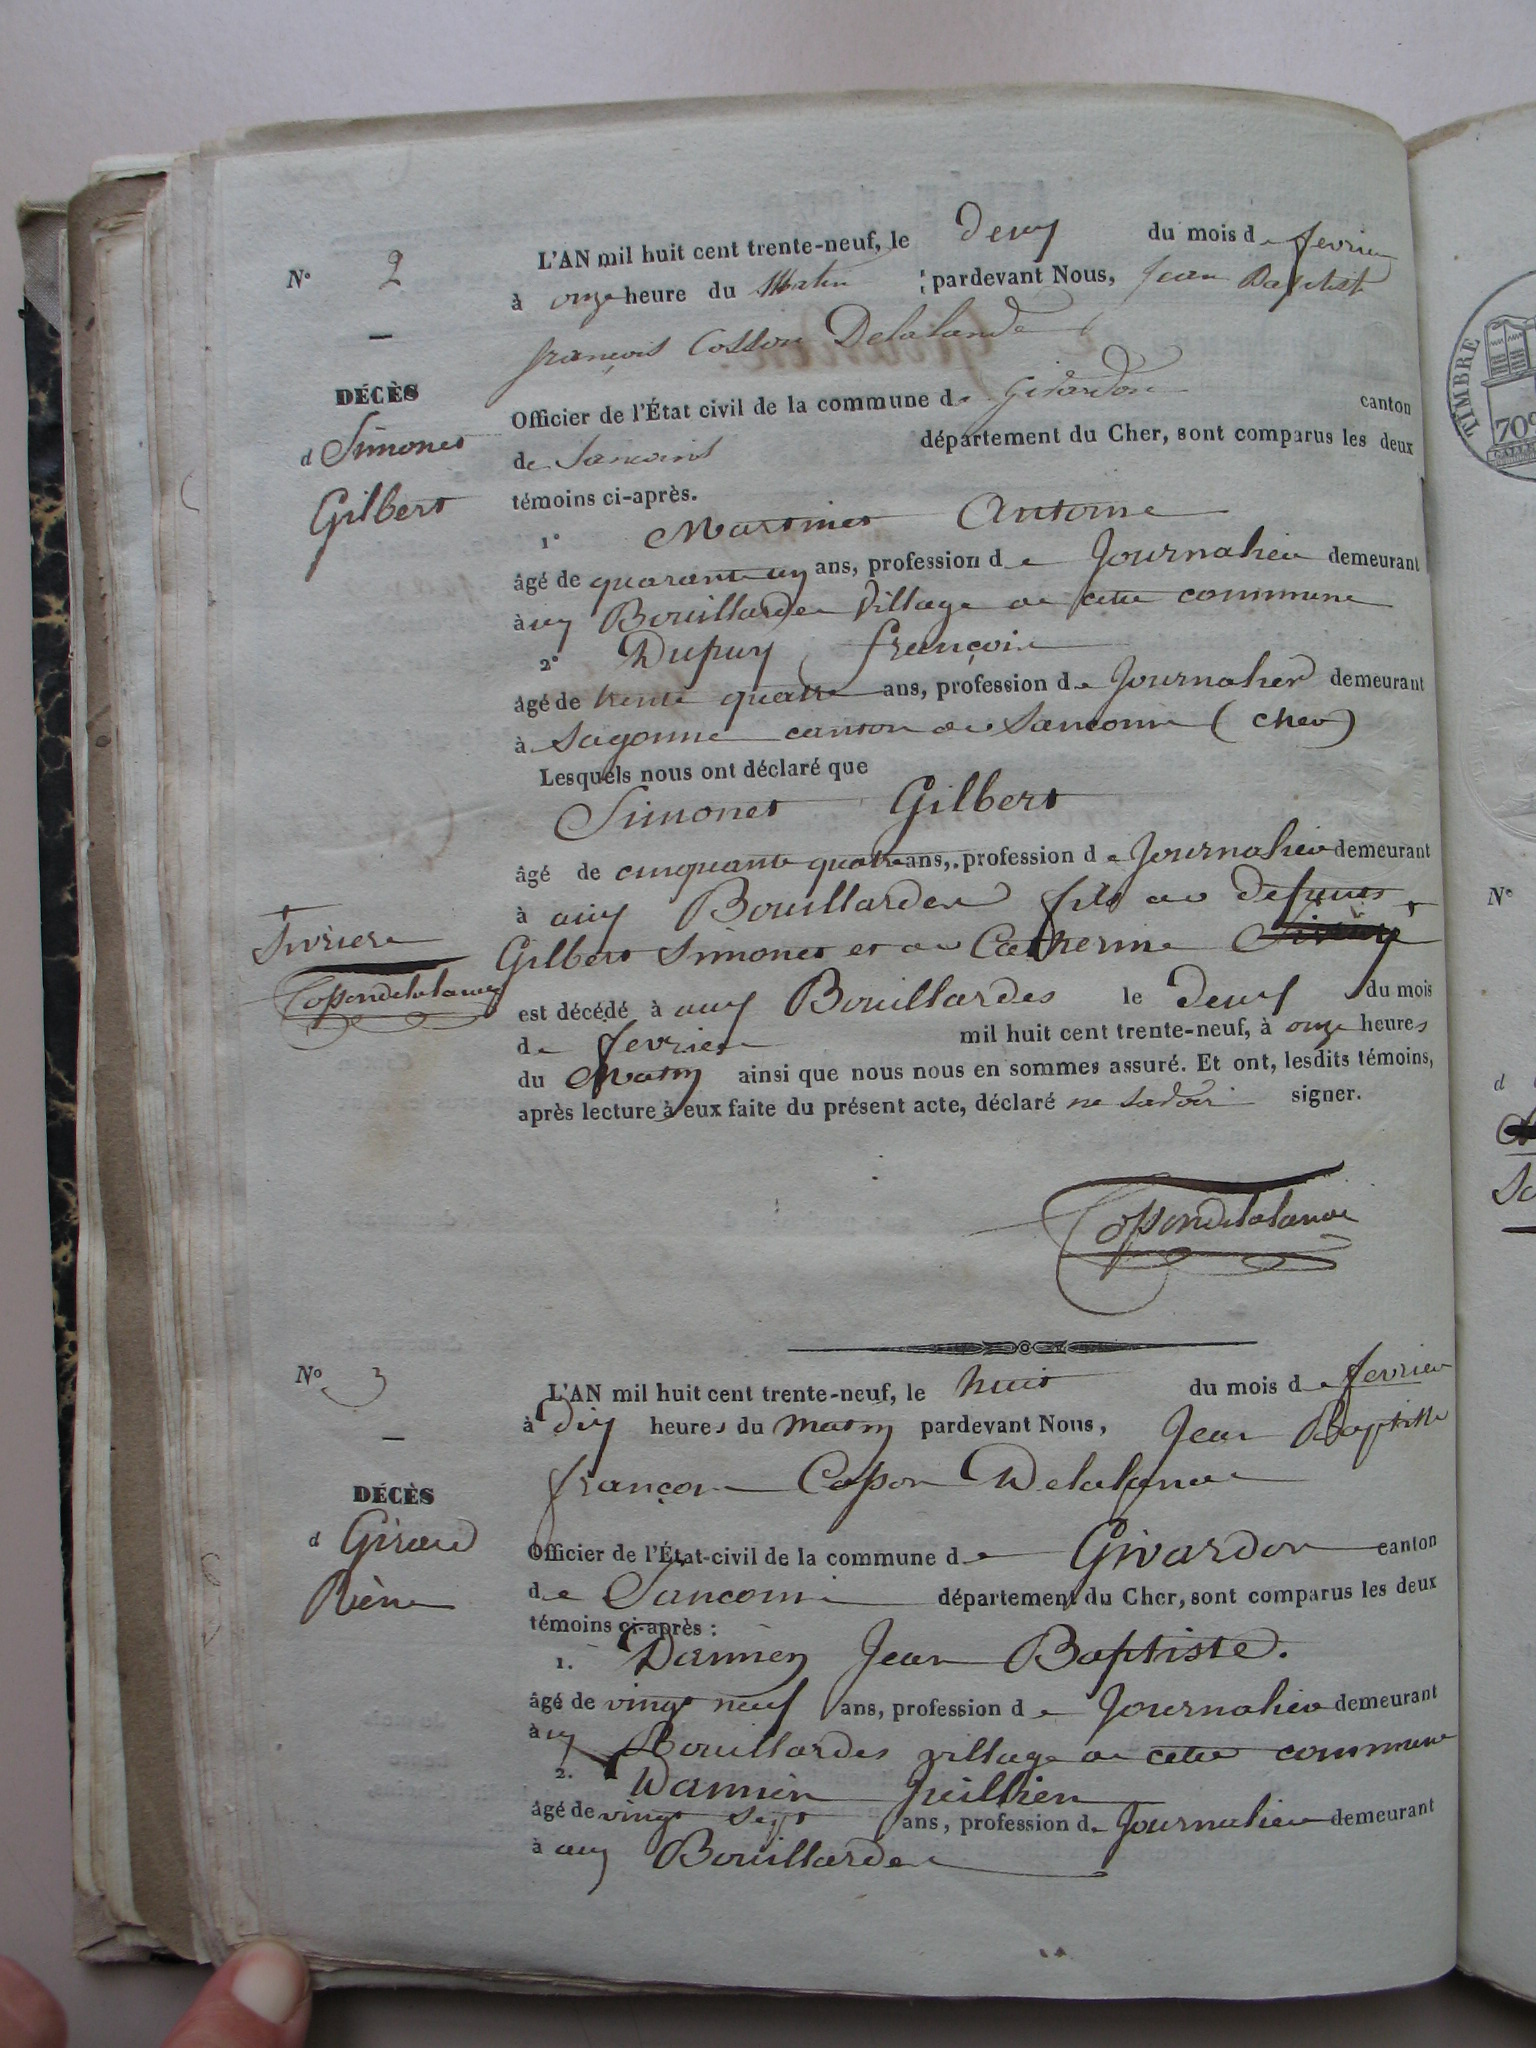 N° 2
L'AN mil huit cent trente-neuf, le deux du mois de fevrier
à onze heure du Matin pardevant Nous, Jean Baptiste
françois Cosson Delalande
DÉCÈS
d Simonet
Gilbert
Officier de l'État civil de la commune de Givardon canton
de Sancoins département du Cher, sont comparus les deux
témoins ci-après.
1° Martinet Antoine
âgé de quarante un ans, profession de Journalier demeurant
à aux Bouillardes Village de cette commune
2° Dupuy françois
âgé de trente quatre ans, profession de Journalier demeurant
à Sagonne canton de Sancoins (Cher)
Lesquels nous ont déclaré que
Simonet Gilbert
âgé de cinquante quatre ans, profession de Journalier demeurant
à aux Bouillardes fils de defunts
Gilbert Simonet et de Catherine
Cossondelalande
est décédé à aux Bouillardes le deux du mois
de fevrier mil huit cent trente-neuf, à onze heures
du Matin ainsi que nous nous en sommes assuré. Et ont, lesdits témoins,
après lecture à eux faite du présent acte, déclaré ne savoir signer.
Cossondelalande
N° 3
L'AN mil huit cent trente-neuf, le huit du mois de fevrier
à dix heures du matin pardevant Nous, Jean Baptiste
françois Cosson Delalande
DÉCÈS
d Giraud
Rène
Officier de l'État-civil de la commune de Givardon canton
de Sancoins département du Cher, sont comparus les deux
témoins ci-après :
1. Jean Baptiste.
âgé de vingt neuf ans, profession de Journalier demeurant
à aux Bouillardes village de cette commune
2.
âgé de vingt sept ans, profession de Journalier demeurant
à aux Bouillardes
TIMBRE
N°
d